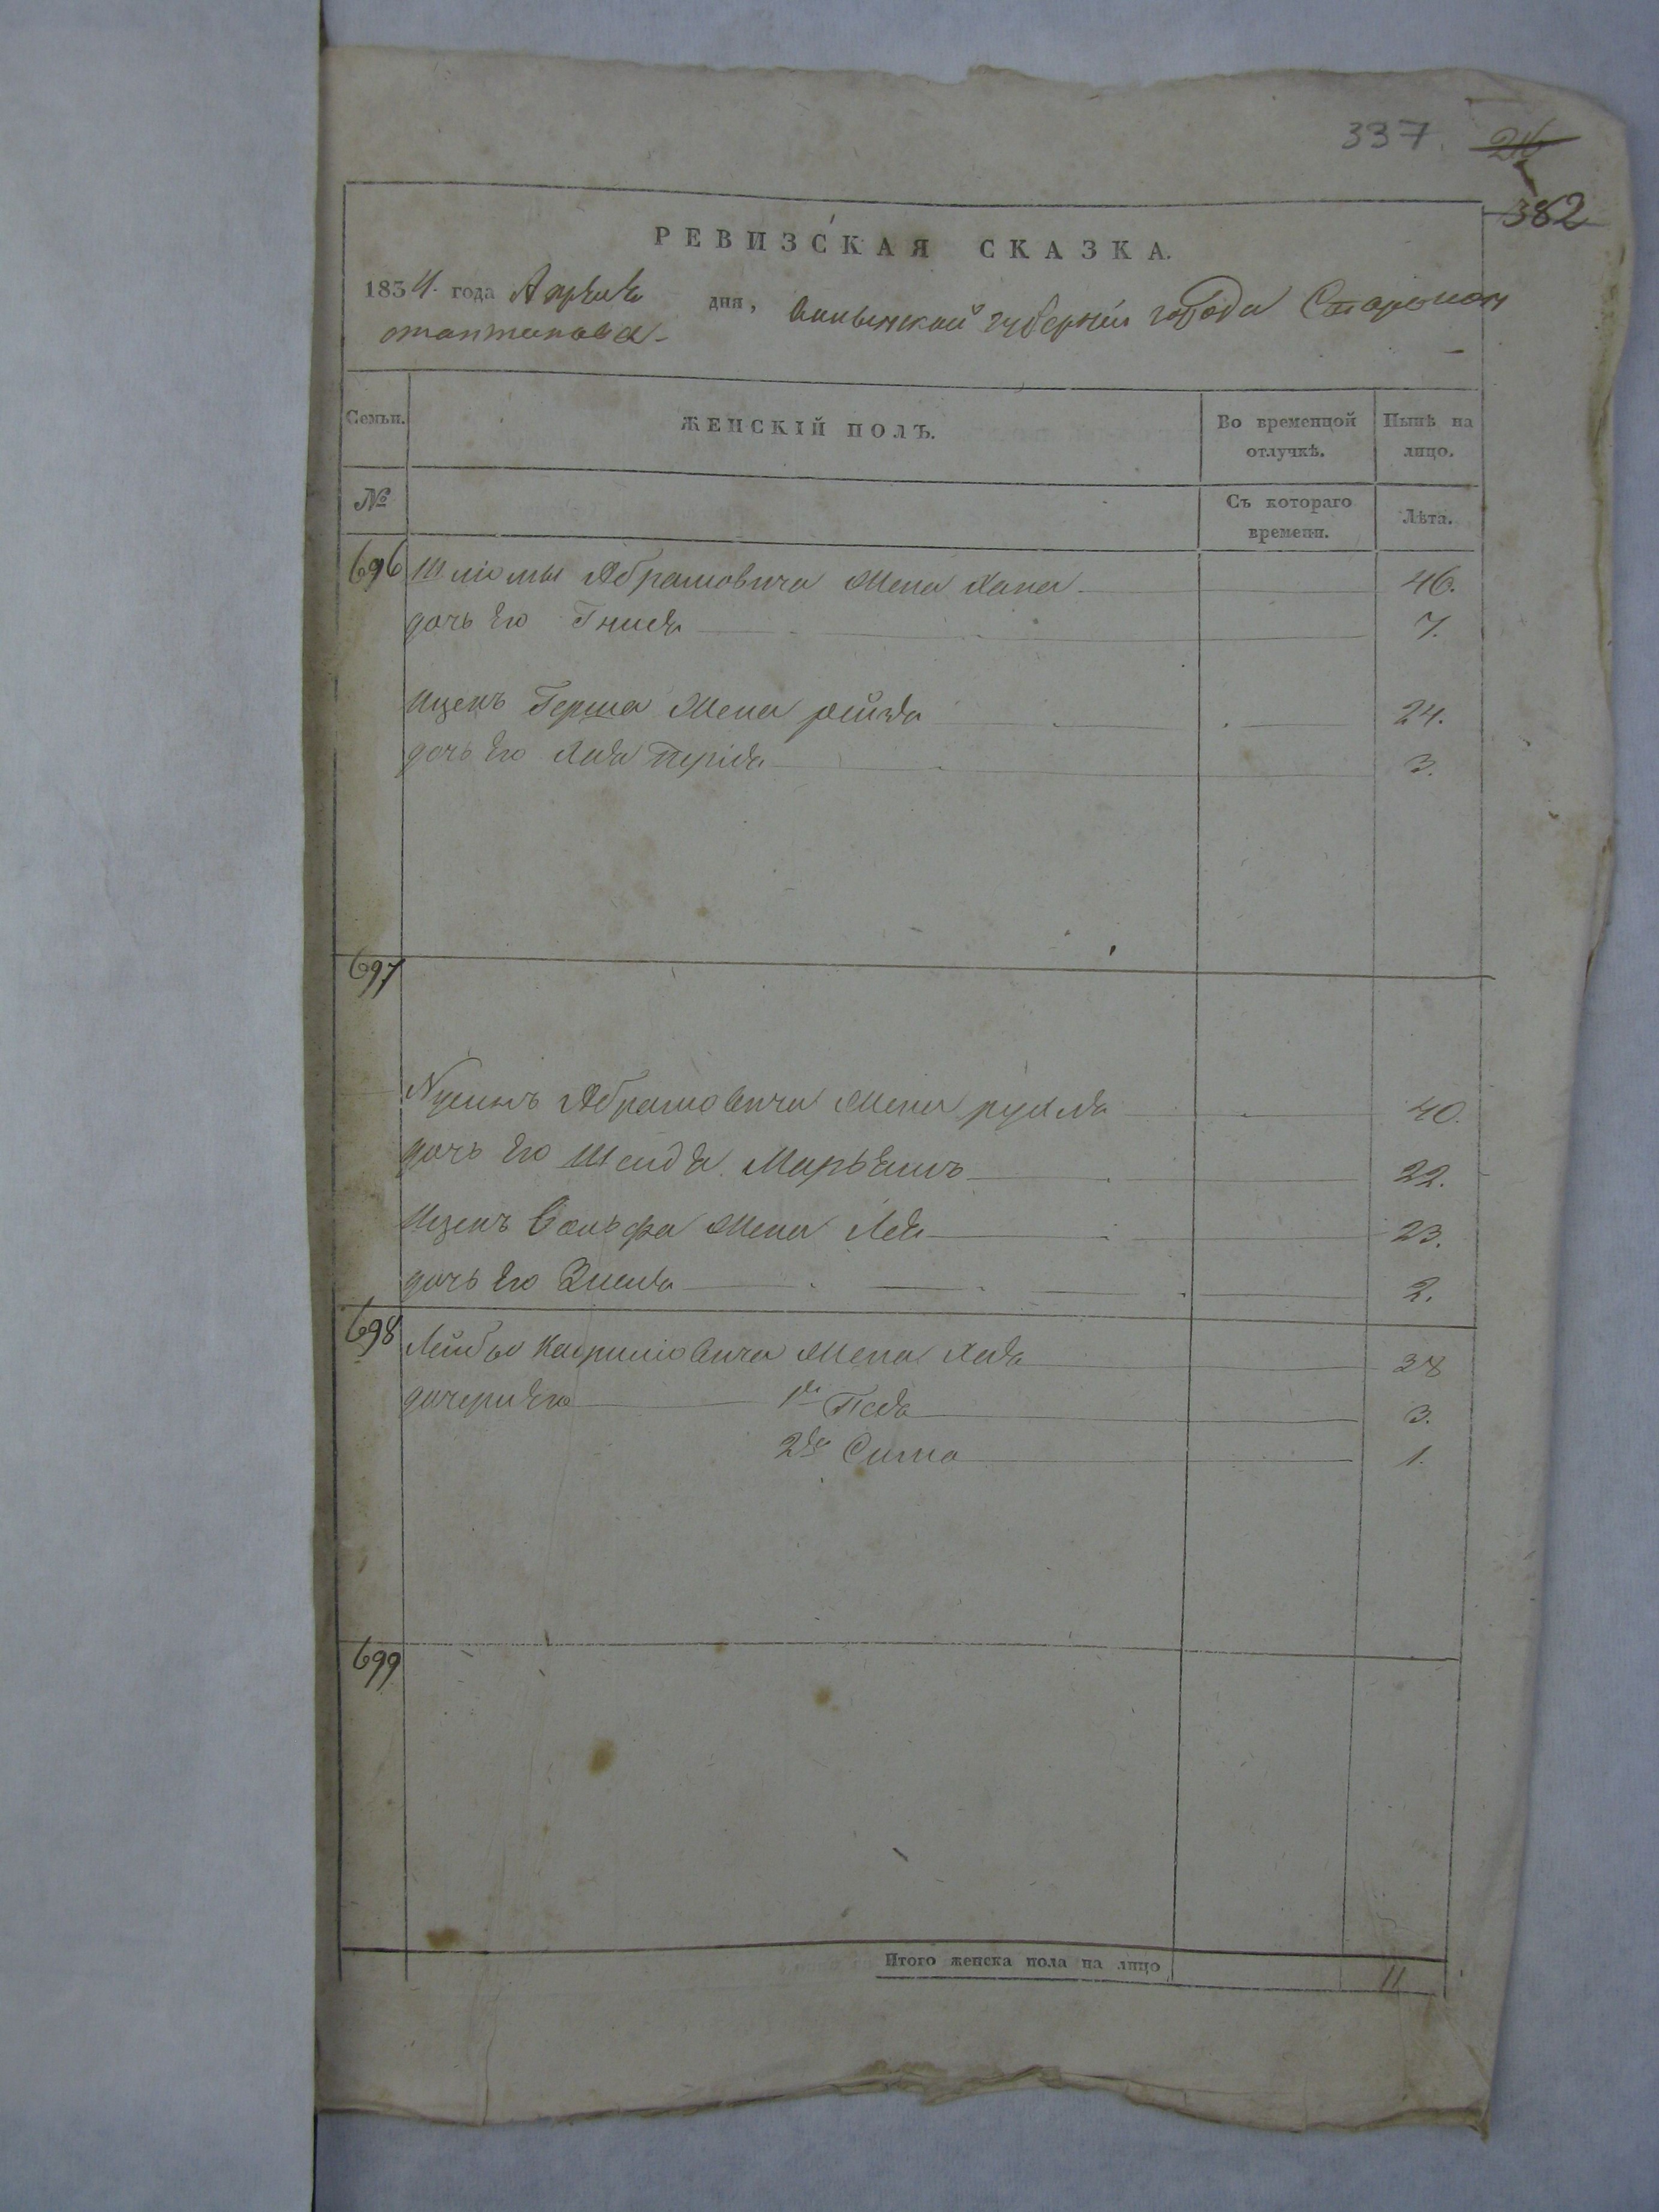 337. 216
382
РЕВИЗСКАЯ СКАЗКА.
1834. года Апреля дня, Волынской губернии города Старокон
стантинова
Семьи. ЖЕНСКІЙ ПОЛЪ. Во временной отлучкѣ. Нынѣ на лицо.
№ Съ котораго времени. Лѣта.
696 Шлiомы Абрамовича жена Хана 46.
дочь Его Гнися 7.
Ицекъ Герша жена рейзя 24.
дочь Его Хая Перля 3.
697
Абрамовича жена рухля 40.
дочь Его Шейдя Марьямъ 22.
Ицекъ Вольфа жена Лея 23.
дочь Его Зисля 2.
698 Лейбы жена Хая 38
дочери Его 1я Песя 3.
2я Сима 1.
699
Итого женска пола на лицо 11